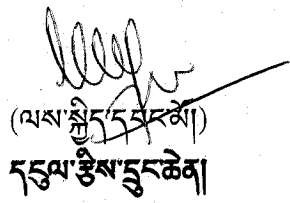 (ལས་སྐྱིད་དབང་མོ།)
དངུལ་རྩིས་དྲུང་ཆེན།